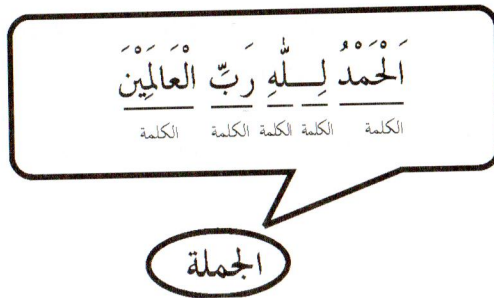 اَلْحَمْدُ لِـــلّٰهِ رَبِّ الْعَالَمِيْنَ
الكلمة الكلمة الكلمة الكلمة الكلمة
الجملة